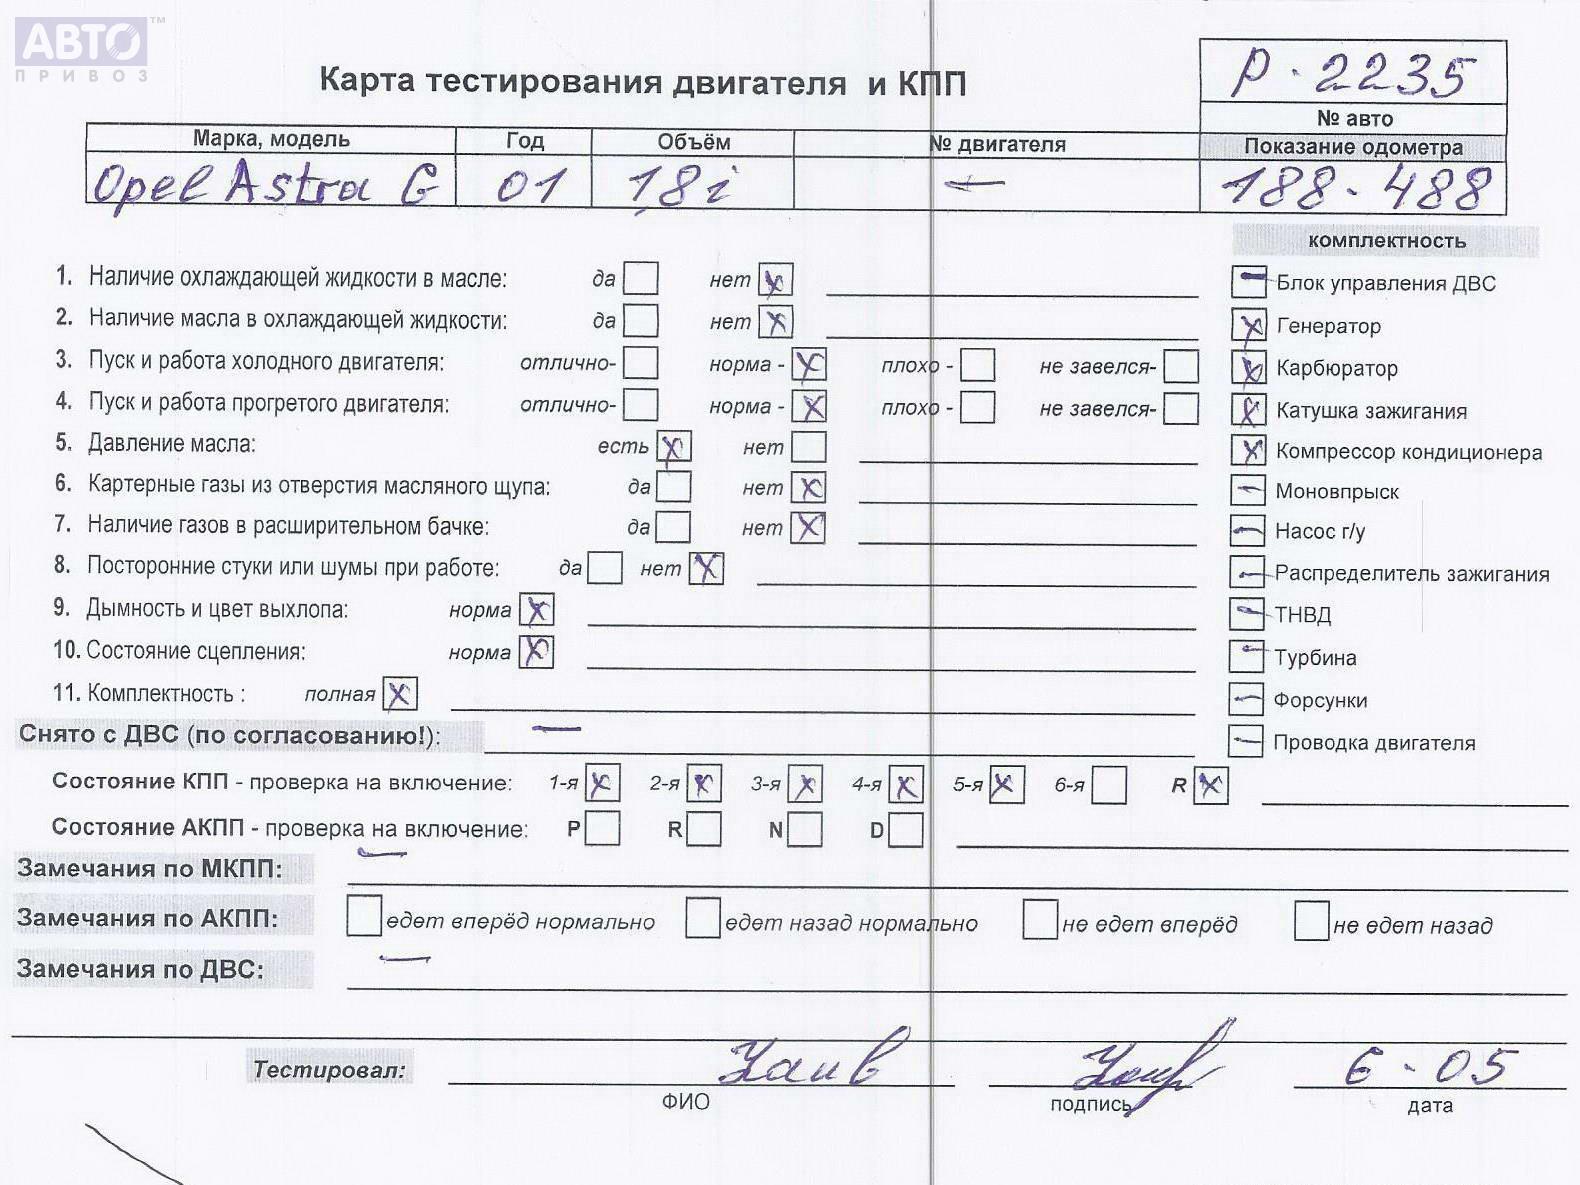 АВТО ™
ПРИВОЗ
Карта тестирования двигателя и КПП
P - 2235
№ авто
Марка, модель Год Объём № двигателя Показание одометра
Opel Astra G 01 1,8i — 188-488
комплектность
1. Наличие охлаждающей жидкости в масле: да нет x
— Блок управления ДВС
2. Наличие масла в охлаждающей жидкости: да нет x
x Генератор
3. Пуск и работа холодного двигателя: отлично- норма - x плохо - не завелся-
x Карбюратор
4. Пуск и работа прогретого двигателя: отлично- норма - x плохо - не завелся-
x Катушка зажигания
5. Давление масла: есть x нет
x Компрессор кондиционера
6. Картерные газы из отверстия масляного щупа: да нет x
— Моновпрыск
7. Наличие газов в расширительном бачке: да нет x
— Насос г/у
8. Посторонние стуки или шумы при работе: да нет x
— Распределитель зажигания
9. Дымность и цвет выхлопа: норма x
— ТНВД
10. Состояние сцепления: норма x
— Турбина
11. Комплектность : полная x
— Форсунки
Снято с ДВС (по согласованию!): —
— Проводка двигателя
Состояние КПП - проверка на включение: 1-я x 2-я x 3-я x 4-я x 5-я x 6-я R x
Состояние АКПП - проверка на включение: P R N D
Замечания по МКПП: —
Замечания по АКПП: едет вперёд нормально едет назад нормально не едет вперёд не едет назад
Замечания по ДВС: —
Тестировал: 6 - 05
ФИО подпись дата